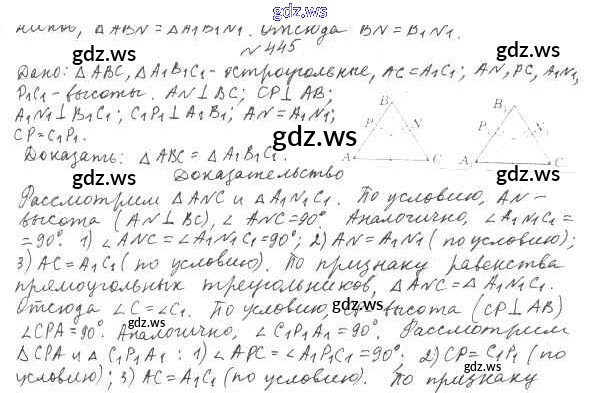 gdz.ws
нипю, △ABN = △A1B1N1. Отсюда BN = B1N1.
№445
gdz.ws gdz.ws
Дано: △ABC, △A1B1C1 - остроугольные, AC = A1C1; AN, PC, A1N1,
P1C1 - высоты. AN⊥BC; CP⊥AB;
A1N1⊥B1C1; C1P1⊥A1B1; AN = A1N1;
CP = C1P1.
B P N A C B1 P N1 A C
gdz.ws
Доказать: △ABC = △A1B1C1.
gdz.ws
Доказательство
Рассмотрим △ANC и △A1N1C1. По условию, AN -
высота (AN⊥BC), ∠ANC = 90°. Аналогично, ∠A1N1C1 =
gdz.ws gdz.ws
= 90°. 1) ∠ANC = ∠A1N1C1 = 90°; 2) AN = A1N1 (по условию);
3) AC = A1C1 (по условию). По признаку равенства
прямоугольных треугольников, △ANC = △A1N1C1.
gdz.ws
Отсюда ∠C = ∠C1. По условию, высота (CP⊥AB)
∠CPA = 90°. Аналогично, ∠C1P1A1 = 90°. Рассмотрим
gdz.ws gdz.ws
△CPA и △C1P1A1: 1) ∠APC = ∠A1P1C1 = 90°. 2) CP = C1P1 (по
условию); 3) AC = A1C1 (по условию). По признаку
gdz.ws